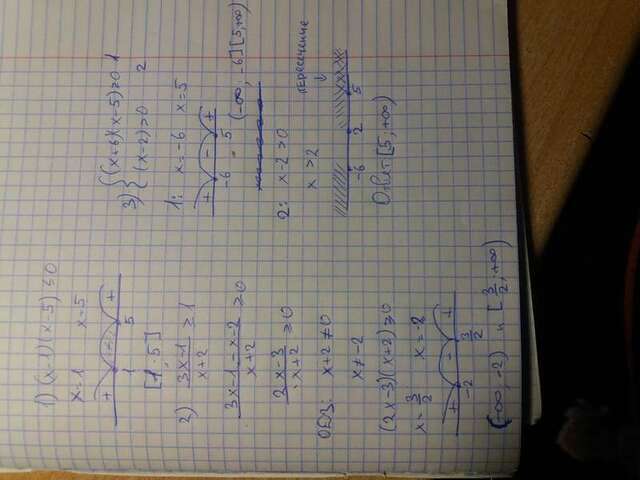 1) (x-1)(x-5) ≤ 0
x=1 x=5
+ - +
1 5
[1; 5]
2) (3x-1)/(x+2) ≥ 1
(3x-1-x-2)/(x+2) ≥ 0
(2x-3)/(x+2) ≥ 0
ОДЗ: x+2≠0
x≠-2
(2x-3)(x+2) ≥ 0
x=3/2 x=-2
+ - +
-2 3/2
(-∞, -2) и [3/2; +∞)
3) { (x+6)(x-5) ≥ 0 1
(x-2)>0 2
1: x=-6 x=5
+ - +
-6 5
(-∞; -6] [5;+∞)
2: x-2>0
x >2
пересечение
-6 2 5
Ответ [5; +∞)